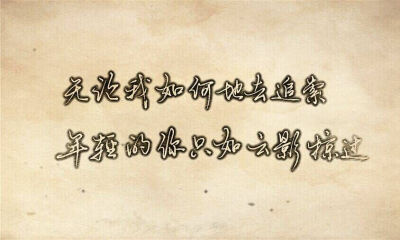 无论我如何地去追索
年轻的你只如云影掠过